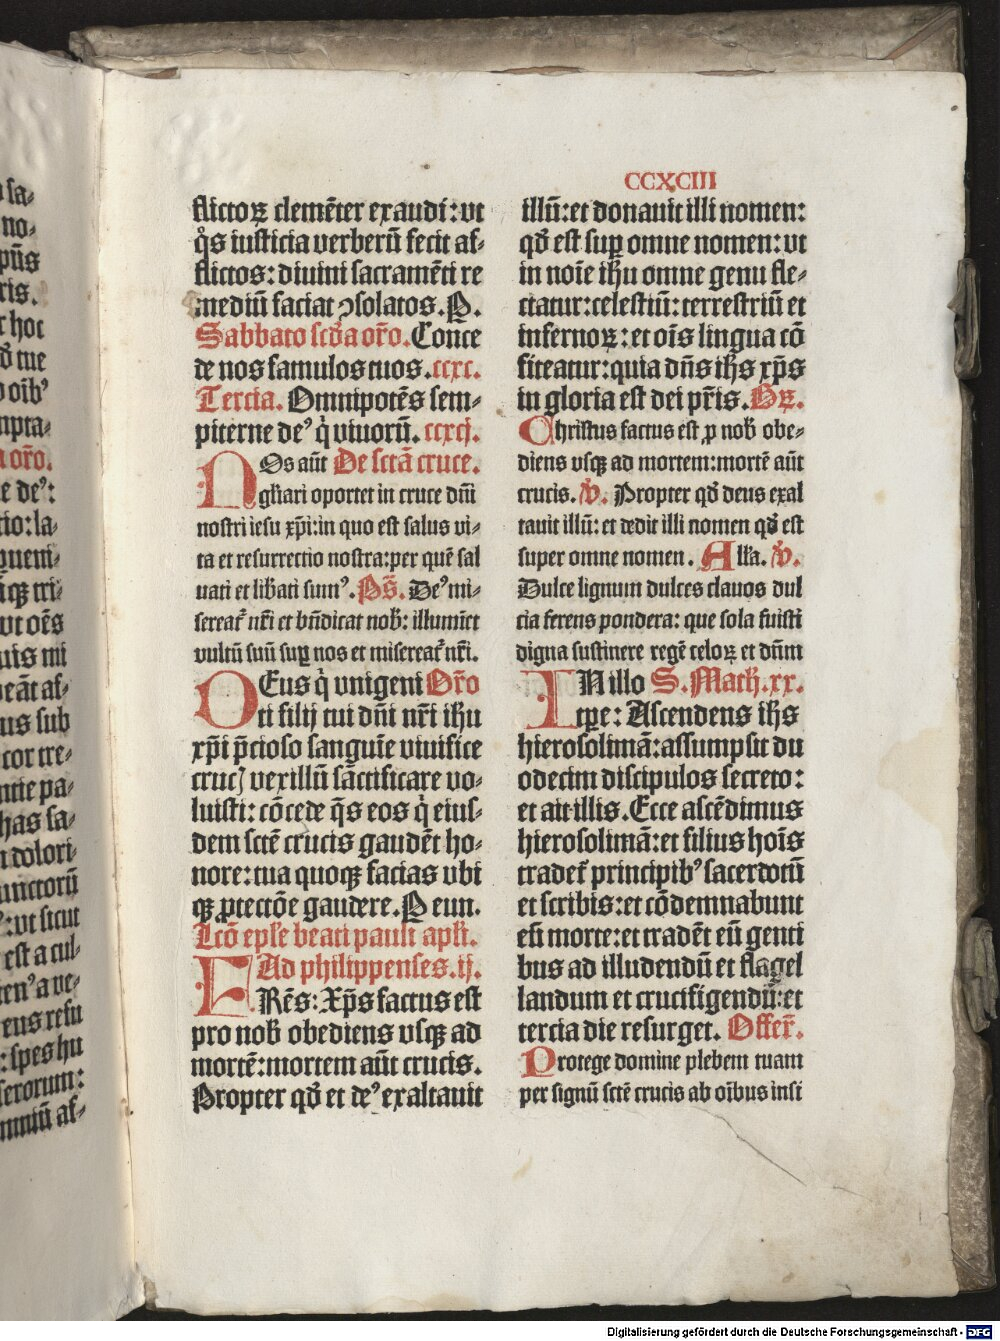 sa-
no-
pūs
ris.
r hoc
ꝺ̄ tue
oib᾿
mpta-
a or̄o.
e de᾿:
tio: la-
pueni-
tri-
vt oēs
uis mi
eāt af-
us sub
cor tre-
ntie pa-
has sa-
dolori-
unctorū
᾿: vt sicut
est a cul-
en᾿ a ve-
eus resu
: spes hu
serorum:
mniū af-
CCXCIII
flictoꝝ clemēter exaudi: vt
q̊s iusticia verberū fecit af-
flictos: diuini sacramēti re
mediū faciat ꝯsolatos. P.
Sabbato scd̄a or̄o. Conce
de nos famulos tuos. ccxc.
Tercia. Omnipotēs sem-
piterne de᾿ q̇ viuorū. ccxcj.
NOs aūt De sctā cruce.
gl̄iari oportet in cruce dn̄i
nostri iesu xp̄i: in quo est salus vi-
ta et resurrectio nostra: per quē sal
uati et lib̄ati sum᾿. Ps̄. De᾿ mi-
sereat᷑ nr̄i et bn̄dicat nob̄: illumīct
vultū suū suꝑ nos et misereat᷑ nr̄i.
DEus q̇ vnigeni Or̄o
ti filij tui dn̄i nr̄i ih̄u
xp̄i p̄cioso sanguīe viuifice
crucꝭ vexillū sāctificare vo-
luisti: cōcede q̄s eos q̇ eius-
dem sctē crucis gaudēt ho-
nore: tua quoqꝫ facias vbi
qꝫ ꝓtectōe gaudere. P eūn.
Lcō ep̄le beati pauli apl̄i.
Ad philippenses. ij.
FRēs: Xp̄s factus est
pro nob̄ obediens vsqꝫ ad
mortē: mortem aūt crucis.
Propter qd̄ et de᾿ exaltauit
illū: et donauit illi nomen:
qd̄ est suꝑ omne nomen: vt
in noīe ih̄u omne genu fle-
ctatur: celestiū: terrestriū et
infernoꝝ: et oīs lingua cō
fiteatur: quia dn̄s ih̄s xp̄s
in gloria est dei pr̄is. Gꝝ.
Christus factus est ꝓ nob̄ obe-
diens vsqꝫ ad mortem: mortē aūt
crucis. v̊. Propter qd̄ deus exal
tauit illū: et dedit illi nomen qd̄ est
super omne nomen. All̄a. v̊.
Dulce lignum dulces clauos dul
cia ferens pondera: que sola fuisti
digna sustinere regē celoꝝ et dn̄m
IN illo S. Math. xx.
tꝑe: Ascendens ih̄s
hierosolimā: assumpsit du
odecim discipulos secreto:
et ait illis. Ecce ascēdimus
hierosolimā: et filius hoīs
tradet᷑ principib᾿ sacerdotū
et scribis: et cōdemnabunt
eū morte: et tradēt eū genti
bus ad illudendū et flagel
landum et crucifigendū: et
tercia die resurget. Offer̄.
Protege domine plebem tuam
per signū sctē crucis ab oībus insi
Digitalisierung gefördert durch die Deutsche Forschungsgemeinschaft - DFG